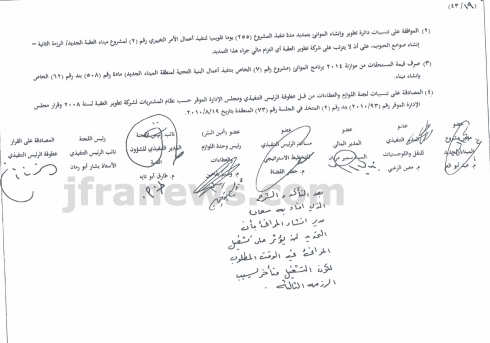 (٢) الموافقة على تنسيبات دائرة تطوير وإنشاء الموانئ بتمديد مدة تنفيذ المشروع (٢٥٥) يوما تقويميا لتنفيذ أعمال الأمر التغييري رقم (٢) لمشروع ميناء العقبة الجديد/ الرزمة الثانية –
إنشاء صوامع الحبوب، على أن لا يترتب على شركة تطوير العقبة أي التزام مالي جراء هذا التمديد.
(٣) صرف قيمة المستحقات من موازنة ٢٠١٤ برنامج الموانئ (مشروع رقم (٧) الخاص بتنفيذ أعمال البنية التحتية لمنطقة الميناء الجديد) مادة رقم (٥٠٨) بند رقم (٦٢) الخاص
بإنشاء ميناء.
(٤) المصادقة على تنسيبات لجنة اللوازم والعطاءات من قبل عطوفة الرئيس التنفيذي ومجلس الإدارة الموقر حسب نظام المشتريات لشركة تطوير العقبة لسنة ٢٠٠٨ وقرار مجلس
الإدارة الموقر (٢٠١٠/٩٣) بند رقم (٢) المتخذ في الجلسة رقم (٧٣) المنعقدة بتاريخ ٢٠١٠/٨/١٩
عضو عضو عضو عضو عضو (أمين السر) نائب رئيس اللجنة رئيس اللجنة المصادقة على القرار
مدير مشروع التنفيذي المدير المالي مساعد الرئيس التنفيذي رئيس وحدة اللوازم المدير التنفيذي للشؤون نائب الرئيس التنفيذي عطوفة الرئيس التنفيذي
الميناء الجديد للنقل واللوجستيات للتخطيط الاستراتيجي والعطاءات الفنية الأستاذ بشار أبو رمان
م. معن الزعبي م. جعفر القضاة م. طارق أبو تايه
jfranews.com
بعد التأكد
الذي أفاد به
مدير
التمديد لن يؤثر على تشغيل
المرافئ في الوقت المطلوب
لكون التشغيل متأخر بسبب
الرزمة الثالثة.